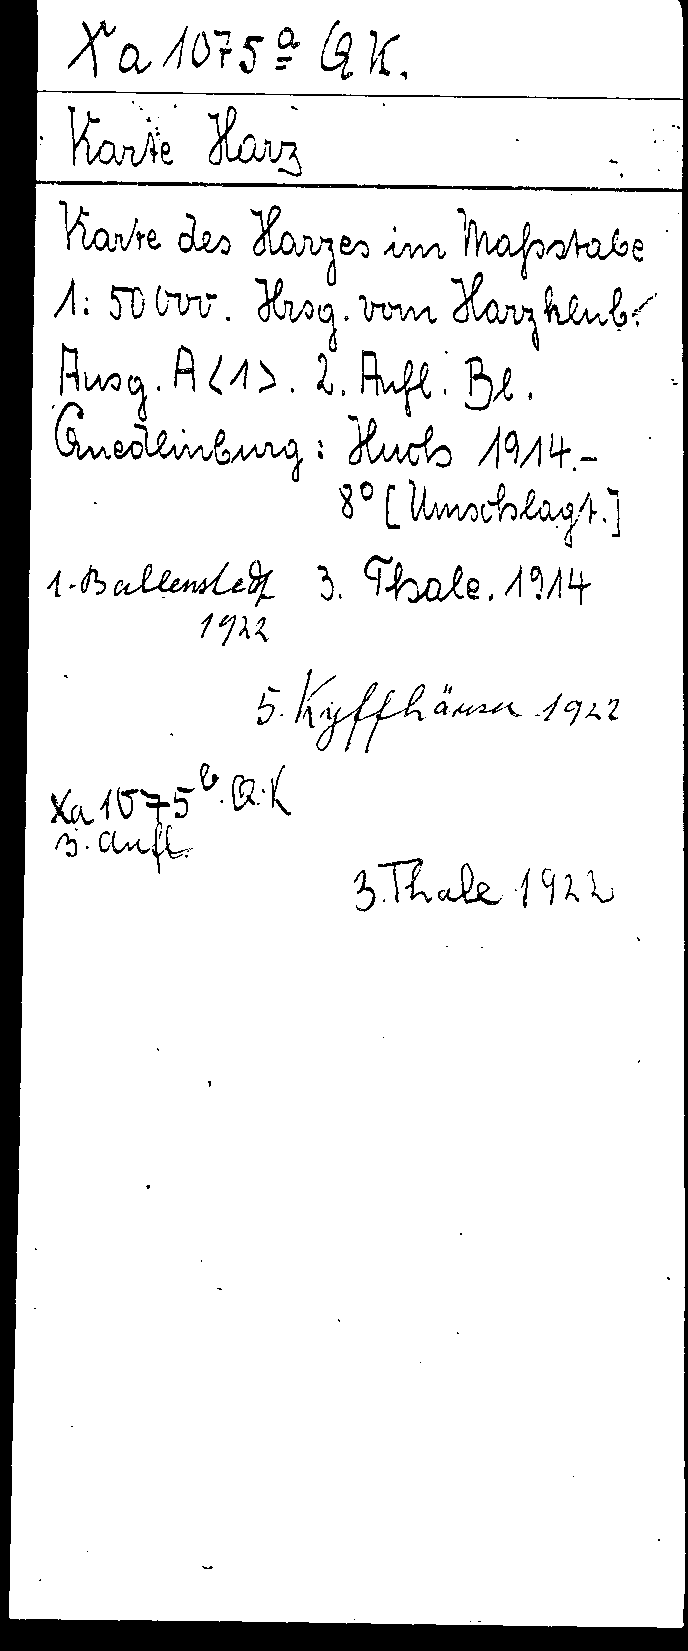 Xa 1075 a QK.
Karte Harz
Karte des Harzes im Maßstabe
1: 50000. Hrsg. vom Harzklub.
Ausg. A <1>. 2. Aufl. Bl.
Quedlinburg: Huch 1914.-
8° [Umschlagt.]
1. Ballenstedt 3. Thale. 1914
1922
5. Kyffhäuser 1922
Xa 1075 b. QK
3. Aufl.
3. Thale 1922